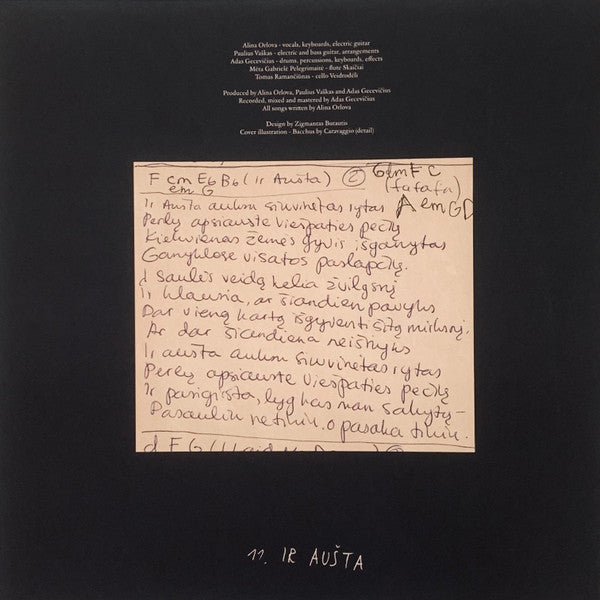 Alina Orlova - vocals, keyboards, electric guitar
Paulius Vaškas - electric and bass guitar, arrangements
Adas Gecevičius - drums, percussions, keyboards, effects
Mėta Gabrielė Pelegrimaitė - flute Skaičiai
Tomas Ramančiūnas - cello Veidrodėli
Produced by Alina Orlova, Paulius Vaškas and Adas Gecevičius
Recorded, mixed and mastered by Adas Gecevičius
All songs written by Alina Orlova
Design by Zigmantas Butautis
Cover illustration - Bacchus by Caravaggio (detail)
F cm Eb Bb (Ir Aušta) ② Gdm F C
em G (fafafa)
A em G D
Ir Aušta auksu siuvinėtas rytas
Perlų apsiauste viešpaties pečių
Kiekvienas žemės gyvis išganytas
Ganyklose visatos paslapčių.
Į saulės veidą kelia žvilgsnį
Ir klausia, ar šiandien pavyks
Dar vieną kartą išgyventi šitą mirksnį,
Ar dar šiandiena neišnyks
Ir aušta auksu siuvinėtas rytas
Perlų apsiauste viešpaties pečių
Ir pasigirsta, lyg kas man sakytų -
Pasauliu netikiu. o pasaka tikiu.
d F G
11. IR AUŠTA